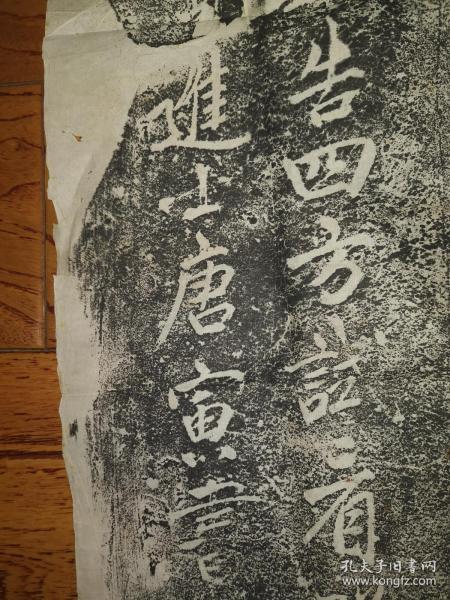 告四方試看
進士唐寅書
孔夫子旧书网
www.kongfz.com